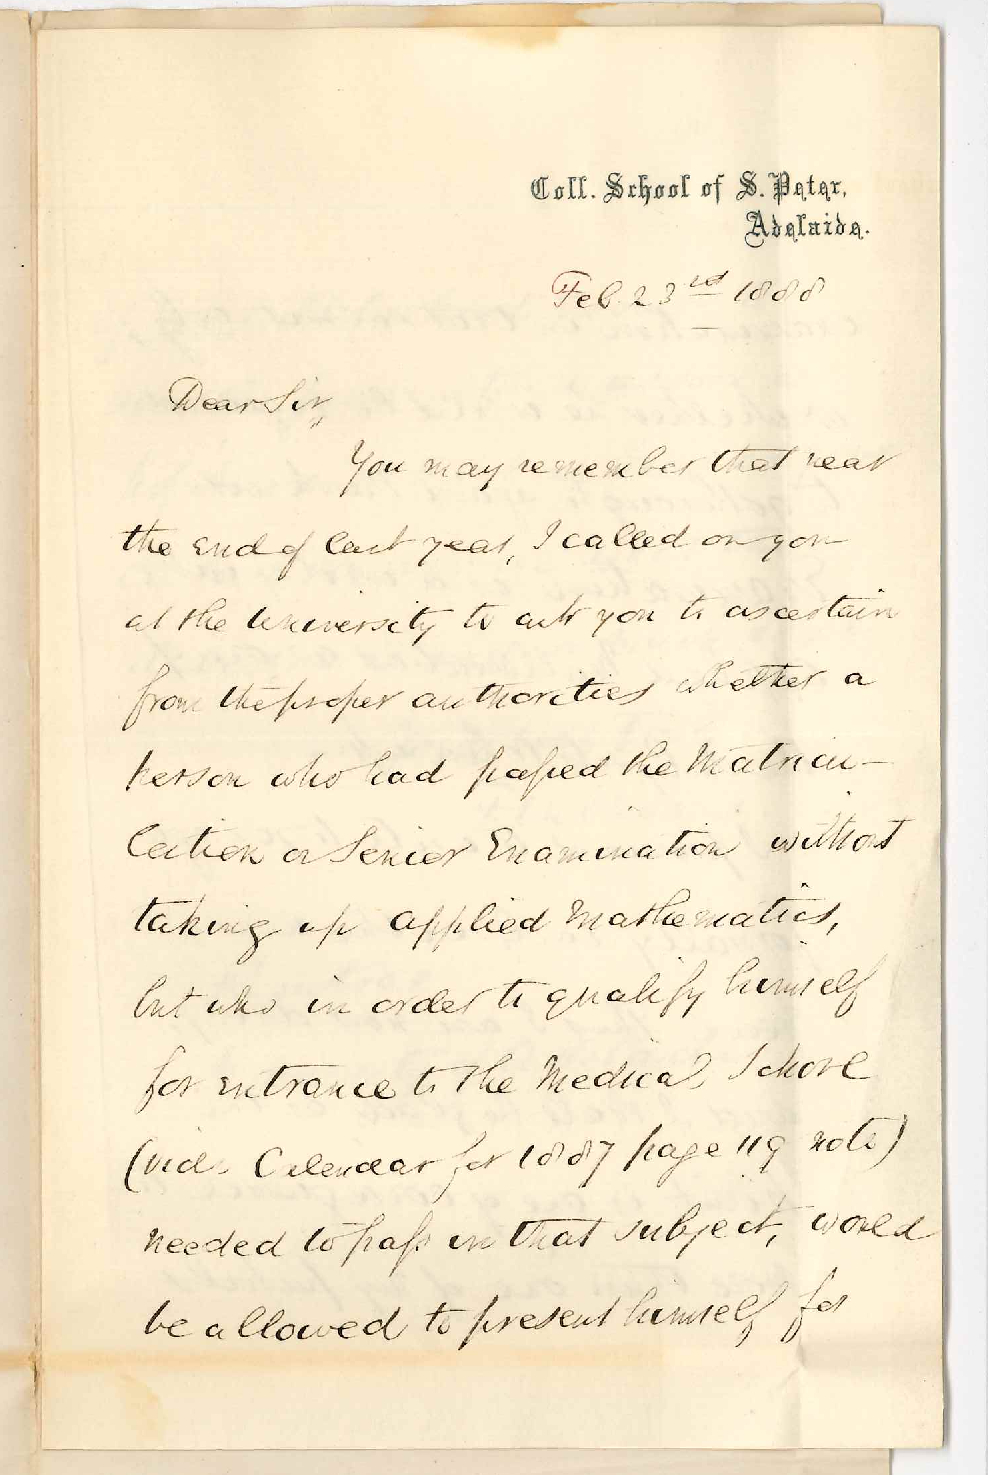 Coll. School of S. Peter,
Adelaide.
Feb. 23rd 1888
Dear Sir,
You may remember that near
the end of last year, I called on you
at the University to ask you to ascertain
from the proper authorities whether a
person who had passed the Matricu-
lation or Senior Examination without
taking up applied Mathematics,
but who in order to qualify himself
for entrance to the Medical School
(vid. Calendar for 1887 page 119 note)
needed to pass in that subject, would
be allowed to present himself for